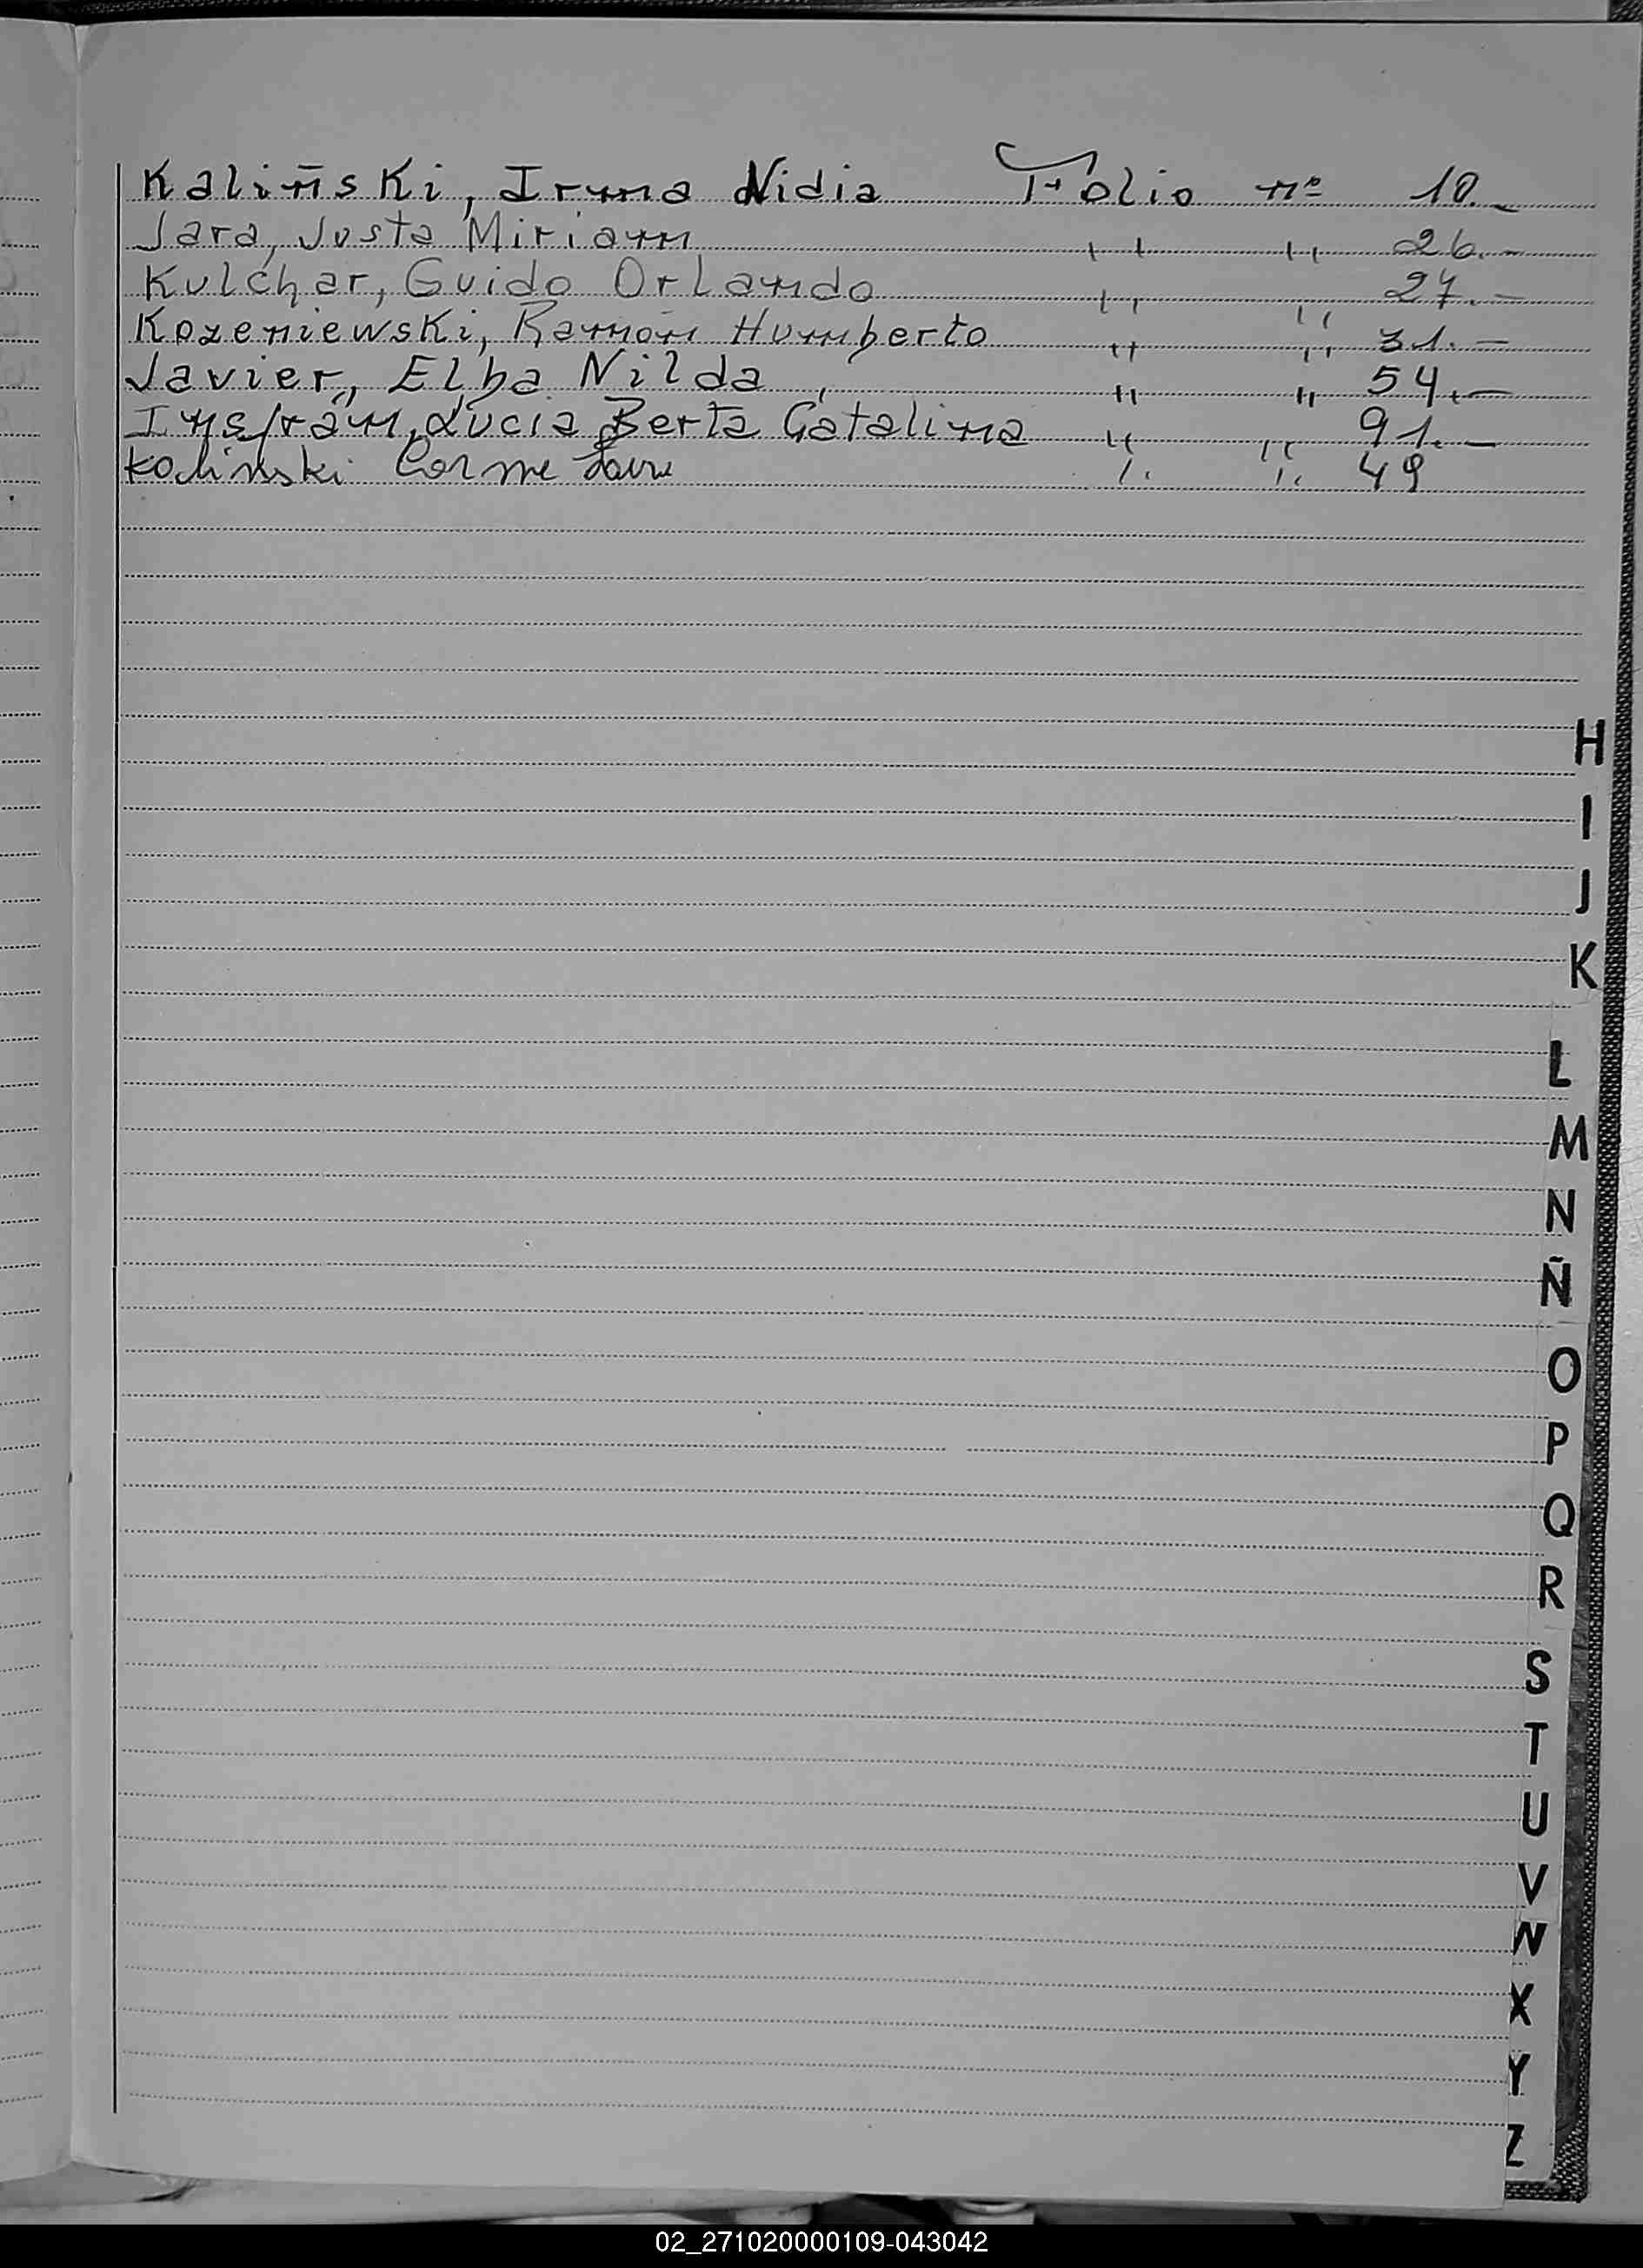 Kaliñski, Irma Nidia Folio nº 10.-
Jara, Justa Miriam '' '' 26.-
Kulchar, Guido Orlando '' '' 27.-
Kozeniewski, Ramón Humberto '' '' 31.-
Javier, Elba Nilda '' '' 54.-
Insfrán, Lucia Berta Catalina '' '' 91.-
'' '' 49
H
I
J
K
L
M
N
Ñ
O
P
Q
R
S
T
U
V
W
X
Y
Z
02_271020000109-043042